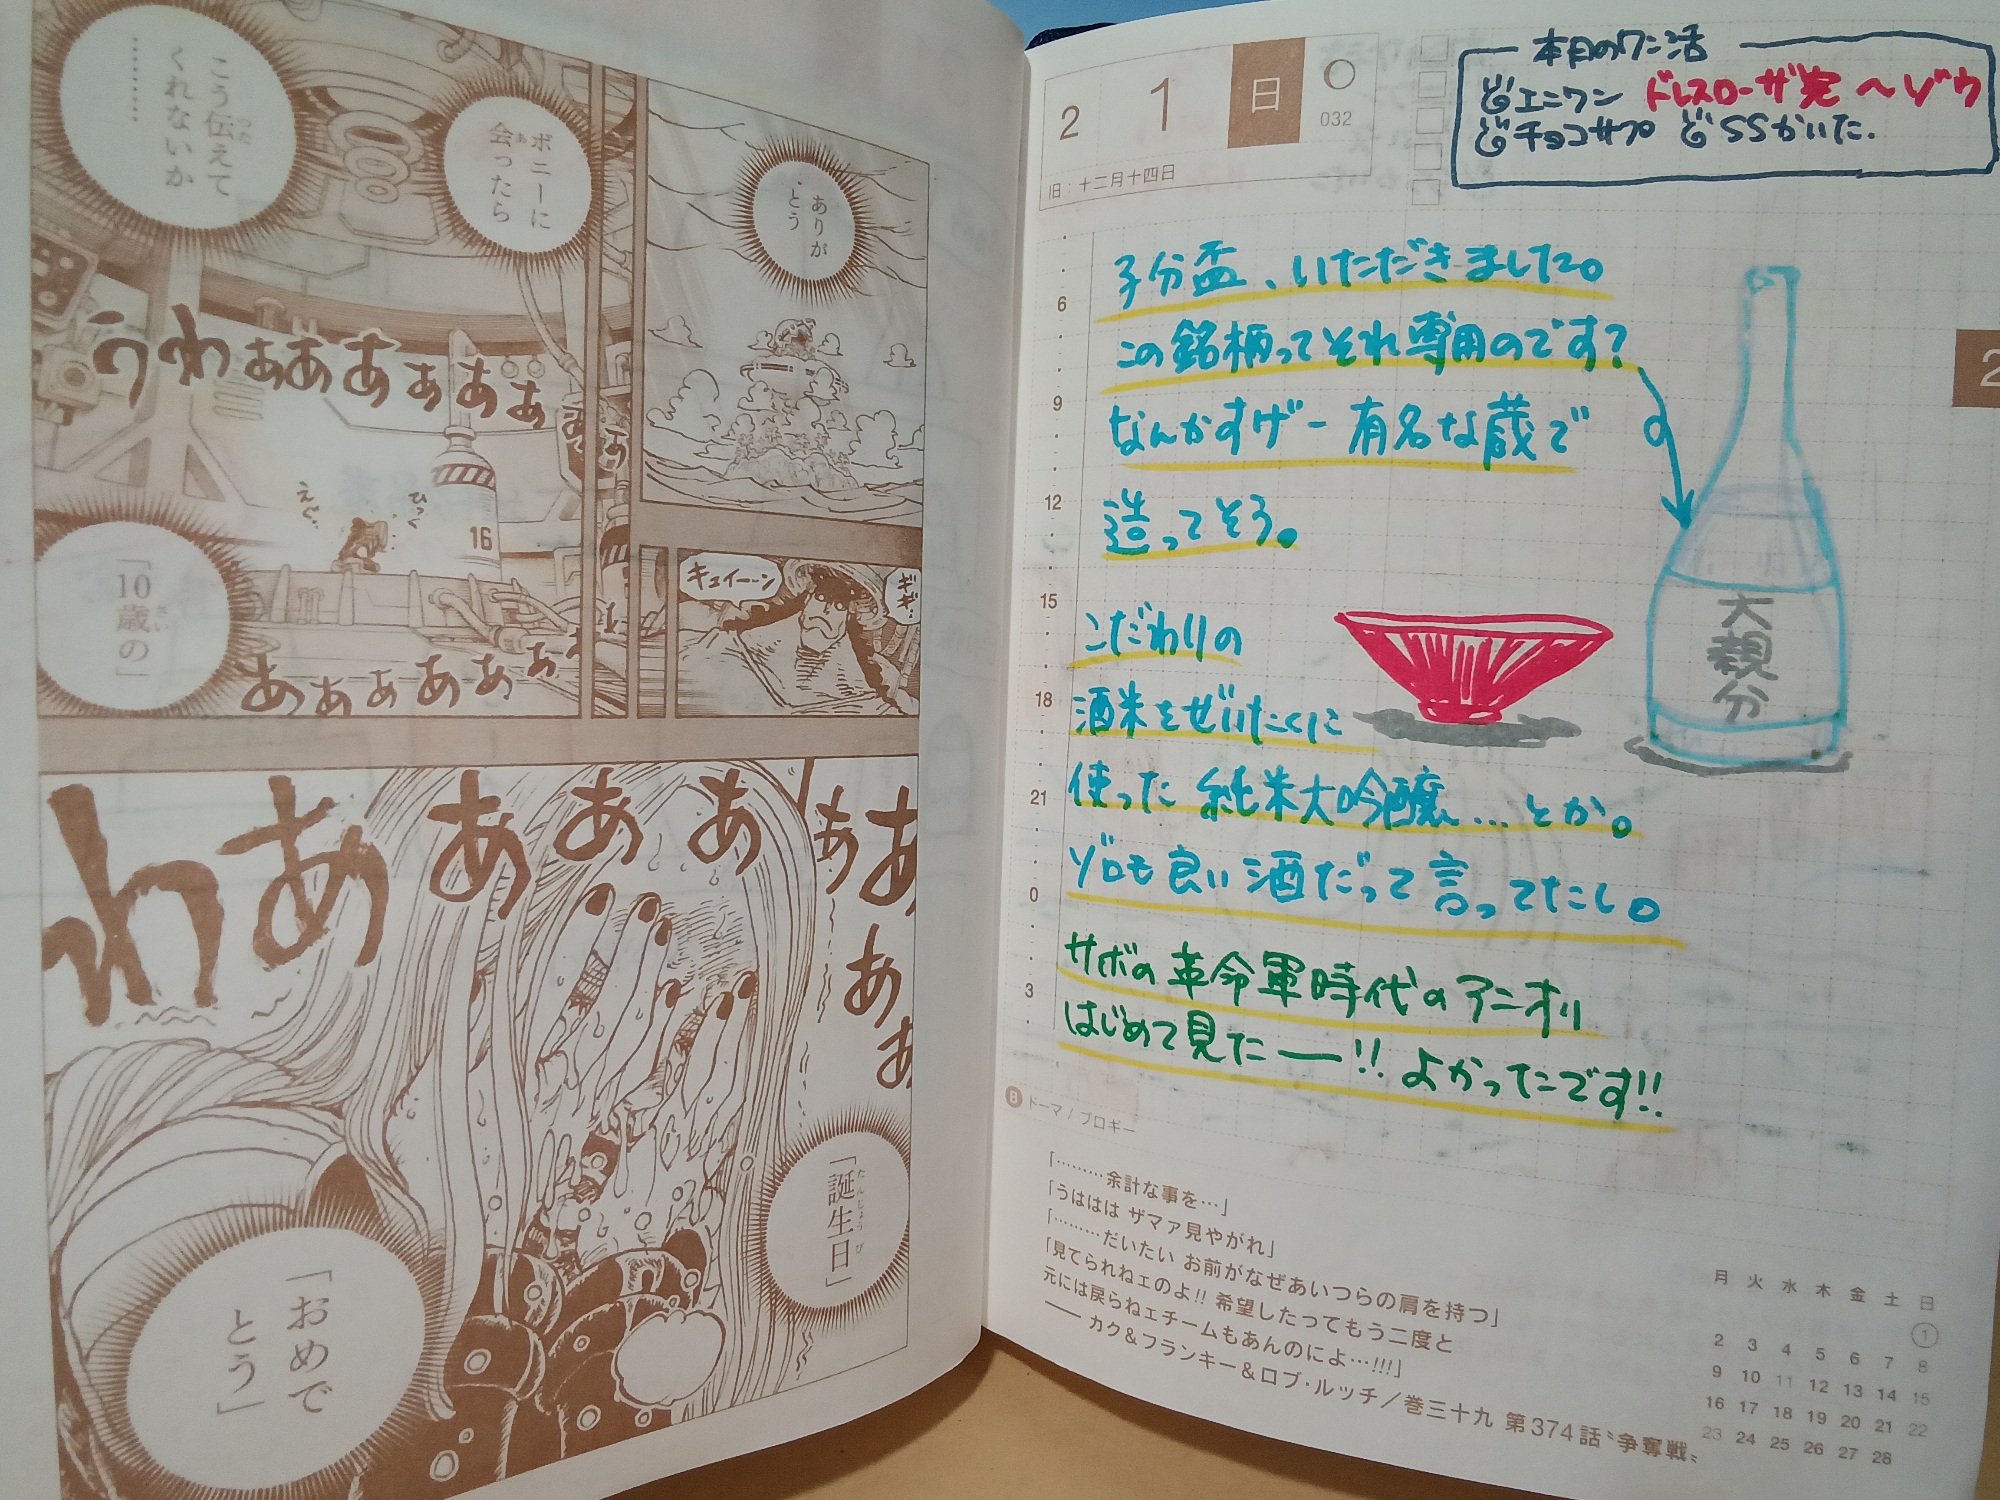 ありが
とう
ボニーに
会ったら
こう伝えて
くれないか
………
うわぁああぁぁぁぁ
ひっく
えぐ
16
キュイーーン
ギギ
「10歳の」
あぁぁぁぁぁ
わあぁぁぁぁあ
あぁ
「誕生日」
「おめで
とう」
2 1 日
032
旧：十二月十四日
本日のワン活
エニワン ドレスローザ完〜ゾウ
チョコサプ SSかいた.
2
子分盃、いただきました。
この銘柄ってそれ専用のです?
なんかすげー有名な蔵で
造ってそう。
こだわりの
酒米をぜいたくに
使った純米大吟醸…とか。
ゾロも良い酒だって言ってたし。
サボの革命軍時代のアニオリ
はじめて見たー!! よかったです!!
大親分
6
9
12
15
18
21
0
3
B ドーマ / ブロギー
「………余計な事を…」
「うははは ザマァ見やがれ」
「………だいたい お前がなぜあいつらの肩を持つ」
「見てられねェのよ!! 希望したってもう二度と
元には戻らねェチームもあんのによ…!!!」
── カク＆フランキー＆ロブ・ルッチ／巻三十九 第374話〝争奪戦〟
月 火 水 木 金 土 日
1
2 3 4 5 6 7 8
9 10 11 12 13 14 15
16 17 18 19 20 21 22
23 24 25 26 27 28